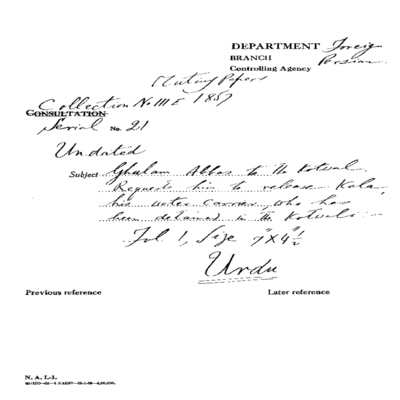 DEPARTMENT Foreign
BRANCH
Controlling Agency Persian
Mutiny Papers
Collection No III E 1857
CONSULTATION
Serial No. 21
Undated
Subject Ghulam Abbas to the Kotwal.
Requests him to release Kala,
his water carrier, who has
been detained in the Kotwali
Fol. 1, Size 7"X4½"
Urdu
Previous reference Later reference
N. A. I.-1.